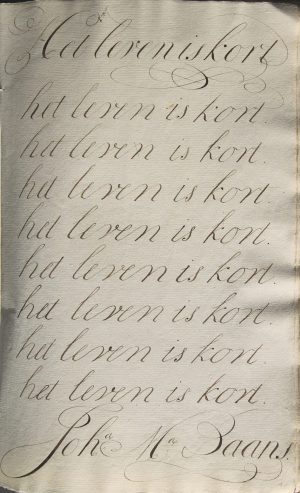 Het leven is kort
het leven is kort.
het leven is kort.
het leven is kort.
het leven is kort.
het leven is kort.
het leven is kort.
het leven is kort.
het leven is kort.
Joh.a M.a Baans.